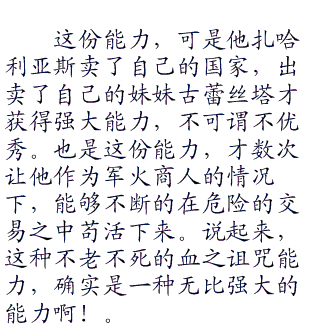 这份能力，可是他扎哈
利亚斯卖了自己的国家，出
卖了自己的妹妹古蕾丝塔才
获得强大能力，不可谓不优
秀。也是这份能力，才数次
让他作为军火商人的情况
下，能够不断的在危险的交
易之中苟活下来。说起来，
这种不老不死的血之诅咒能
力，确实是一种无比强大的
能力啊！。